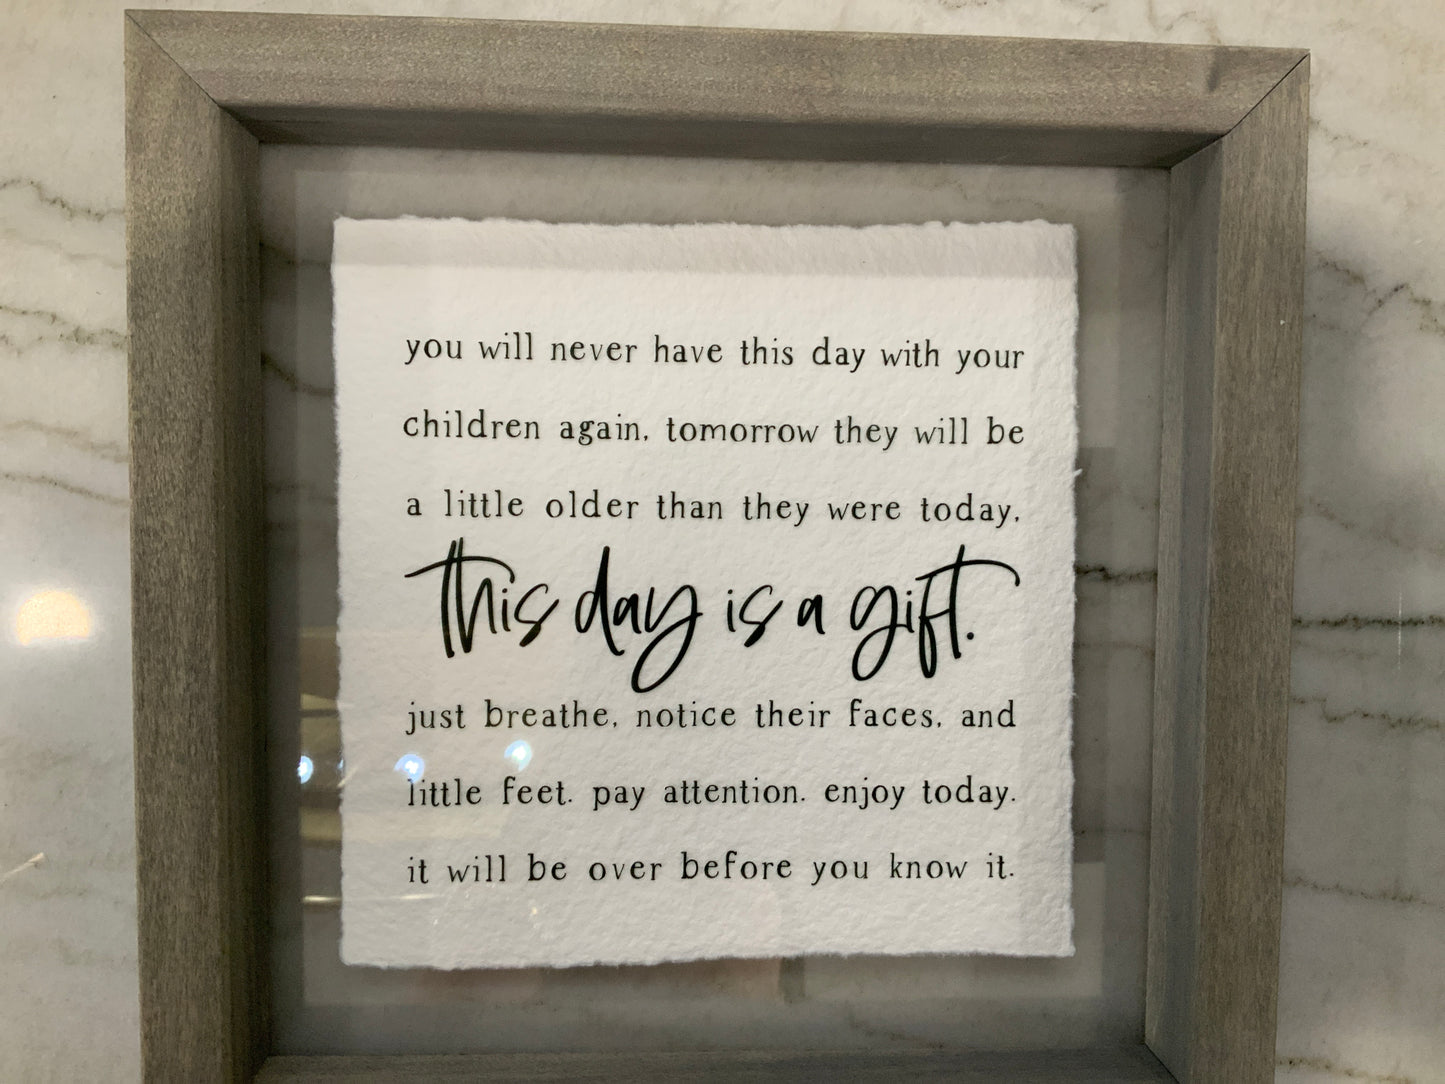 you will never have this day with your
children again. tomorrow they will be
a little older than they were today.
this day is a gift.
just breathe, notice their faces, and
little feet. pay attention. enjoy today.
it will be over before you know it.